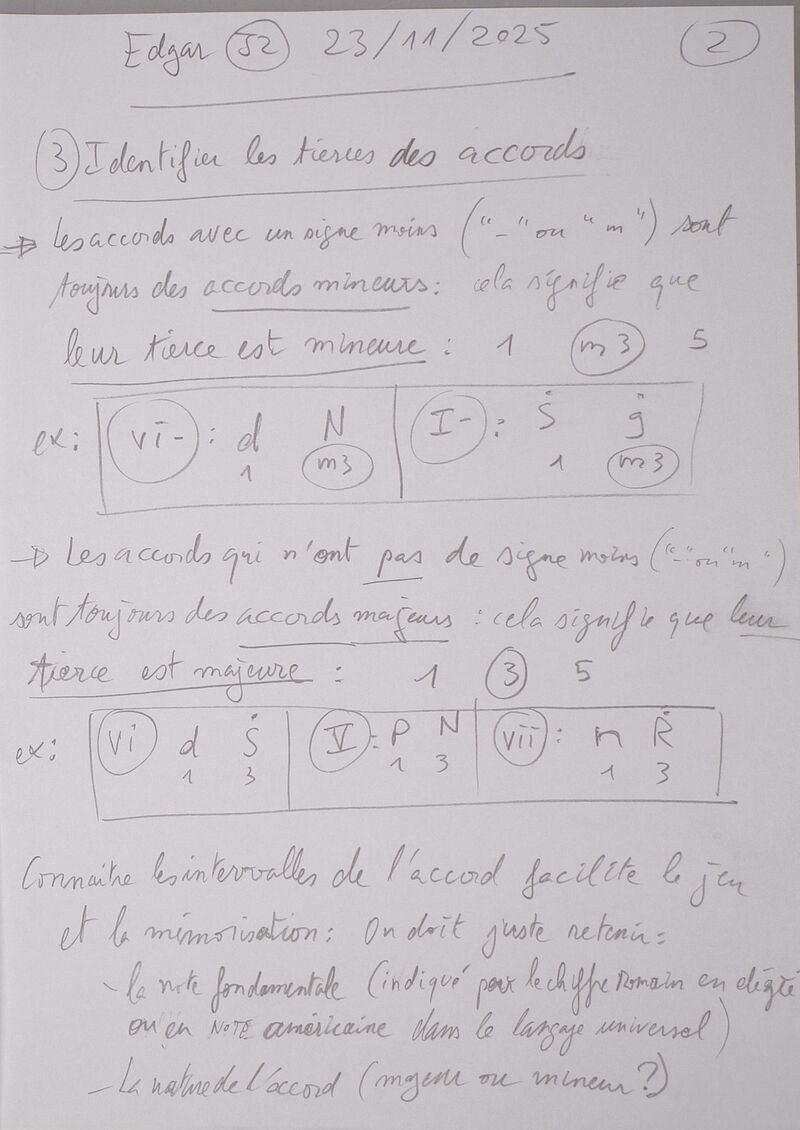 Edgar S2 23/11/2025 2
3 Identifier les tierces des accords
→ Les accords avec un signe moins ("-" ou "m") sont
toujours des accords mineurs : cela signifie que
leur tierce est mineure : 1 m3 5
ex: vi- : d N I- : Ṡ ġ
1 m3 1 m3
→ Les accords qui n'ont pas de signe moins ("-" ou "m")
sont toujours des accords majeurs : cela signifie que leur
tierce est majeure : 1 3 5
ex: vi d Ṡ V : P N vii : n Ṙ
1 3 1 3 1 3
Connaitre les intervalles de l'accord facilite le jeu
et la mémorisation : On doit juste retenir :
- la note fondamentale (indiqué par le chiffre romain en degré
ou en NOTE américaine dans le langage universel)
- La nature de l'accord (majeur ou mineur ?)